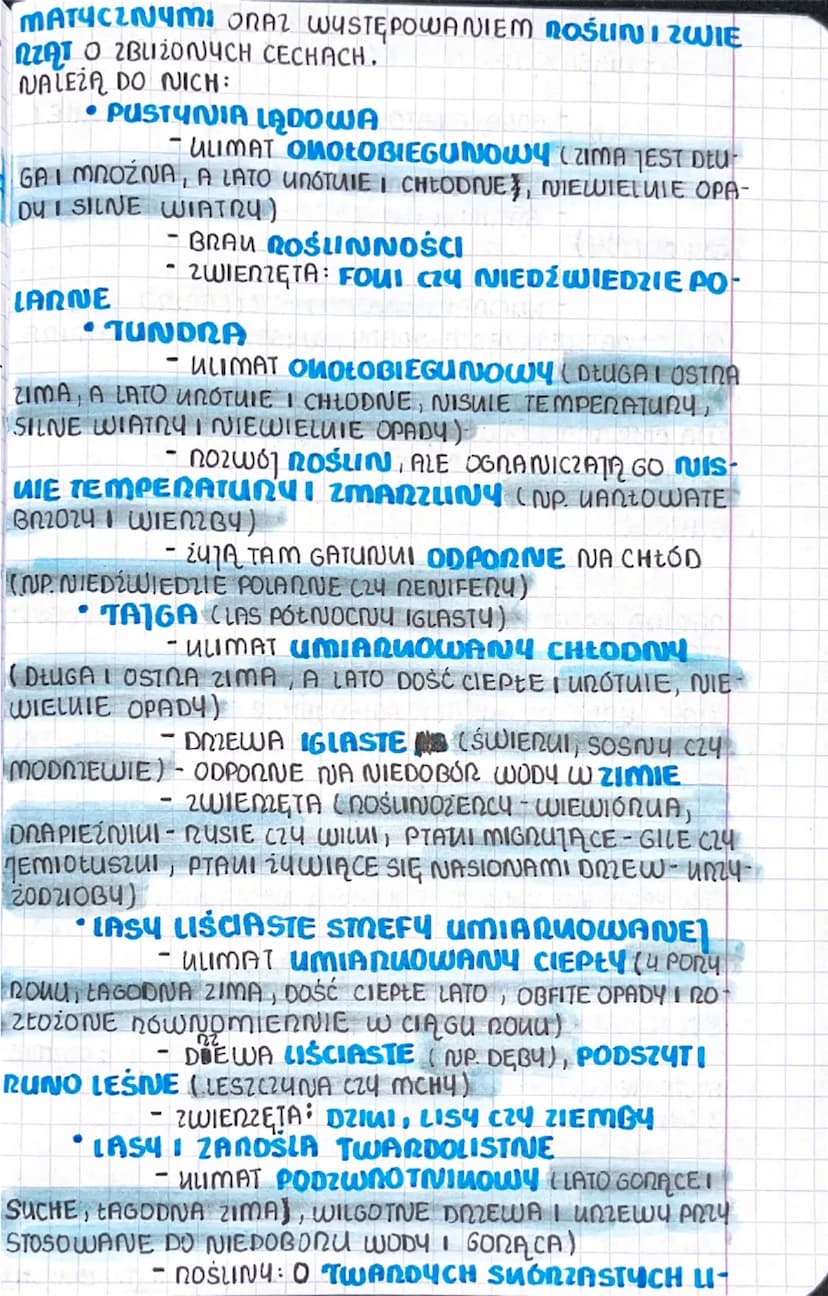 MATYCZNYMI ORAZ WYSTĘPOWANIEM ROŚLIN I ZWIE
RZĄT O ZBLIŻONYCH CECHACH.
NALEŻĄ DO NICH:
• PUSTYNIA LĄDOWA
- KLIMAT OKOŁOBIEGUNOWY (ZIMA JEST DŁU-
GA I MROŹNA, A LATO KRÓTKIE I CHŁODNE), NIEWIELKIE OPA-
DY I SILNE WIATRY)
- BRAK ROŚLINNOŚCI
- ZWIERZĘTA: FOKI CZY NIEDŹWIEDZIE PO-
LARNE
• TUNDRA
- KLIMAT OKOŁOBIEGUNOWY (DŁUGA I OSTRA
ZIMA, A LATO KRÓTKIE I CHŁODNE, NISKIE TEMPERATURY,
SILNE WIATRY I NIEWIELKIE OPADY)
- ROZWÓJ ROŚLIN, ALE OGRANICZAJĄ GO NIS-
KIE TEMPERATURY I ZMARZLINY (NP. KARŁOWATE
BRZOZY I WIERZBY)
- ŻYJĄ TAM GATUNKI ODPORNE NA CHŁÓD
(NP. NIEDŹWIEDZIE POLARNE CZY RENIFERY)
• TAJGA (LAS PÓŁNOCNY IGLASTY)
- KLIMAT UMIARKOWANY CHŁODNY
(DŁUGA I OSTRA ZIMA, A LATO DOŚĆ CIEPŁE I KRÓTKIE, NIE-
WIELKIE OPADY)
- DRZEWA IGLASTE (ŚWIERKI, SOSNY CZY
MODRZEWIE) - ODPORNE NA NIEDOBÓR WODY W ZIMIE
- ZWIERZĘTA (ROŚLINOŻERCY - WIEWIÓRKA,
DRAPIEŻNIKI - RYSIE CZY WILKI, PTAKI MIGRUJĄCE - GILE CZY
JEMIOŁUSZKI, PTAKI ŻYWIĄCE SIĘ NASIONAMI DRZEW - KRZY-
ŻODZIOBY)
• LASY LIŚCIASTE STREFY UMIARKOWANEJ
- KLIMAT UMIARKOWANY CIEPŁY (4 PORY
ROKU, ŁAGODNA ZIMA, DOŚĆ CIEPŁE LATO, OBFITE OPADY I RO-
ZŁOŻONE RÓWNOMIERNIE W CIĄGU ROKU)
- DRZEWA LIŚCIASTE (NP. DĘBY), PODSZYT I
RUNO LEŚNE (LESZCZYNA CZY MCHY)
- ZWIERZĘTA: DZIKI, LISY CZY ZIEMBY
• LASY I ZAROŚLA TWARDOLISTNE
- KLIMAT PODZWROTNIKOWY (LATO GORĄCE I
SUCHE, ŁAGODNA ZIMA), WILGOTNE DRZEWA I KRZEWY PRZY
STOSOWANE DO NIEDOBORU WODY I GORĄCA)
- ROŚLINY: O TWARDYCH SKÓRZASTYCH LI-